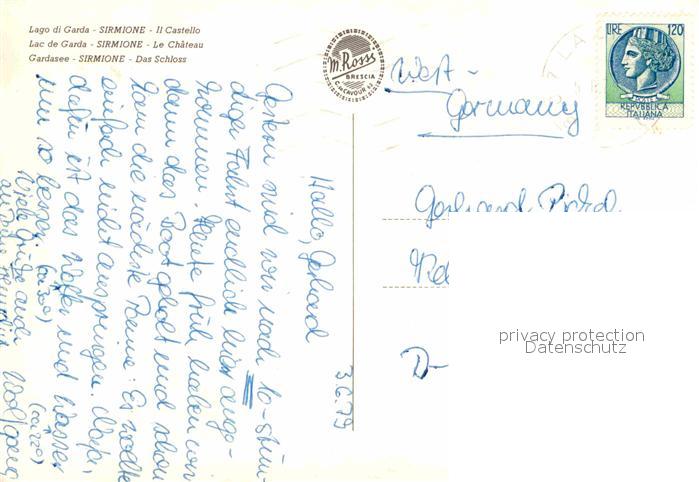 Lago di Garda - SIRMIONE - Il Castello
Lac de Garda - SIRMIONE - Le Château
Gardasee - SIRMIONE - Das Schloss
M. Ross
BRESCIA
C. CAVOUR 42
LIRE 120
REPVBBLICA
ITALIANA
West-
Germany
D-
privacy protection
Datenschutz
3.6.79
Hallo, Gerhard
Gestern sind wir nach 10-stün-
diger Fahrt endlich hier ange-
kommen. Heute früh haben wir
dann das Boot geholt und schon
kam die nächste Panne: Es wollte
einfach nicht anspringen. Naja,
dafür ist das Wetter und Wasser
um so besser
Viele Grüße auch
an Wolfgang